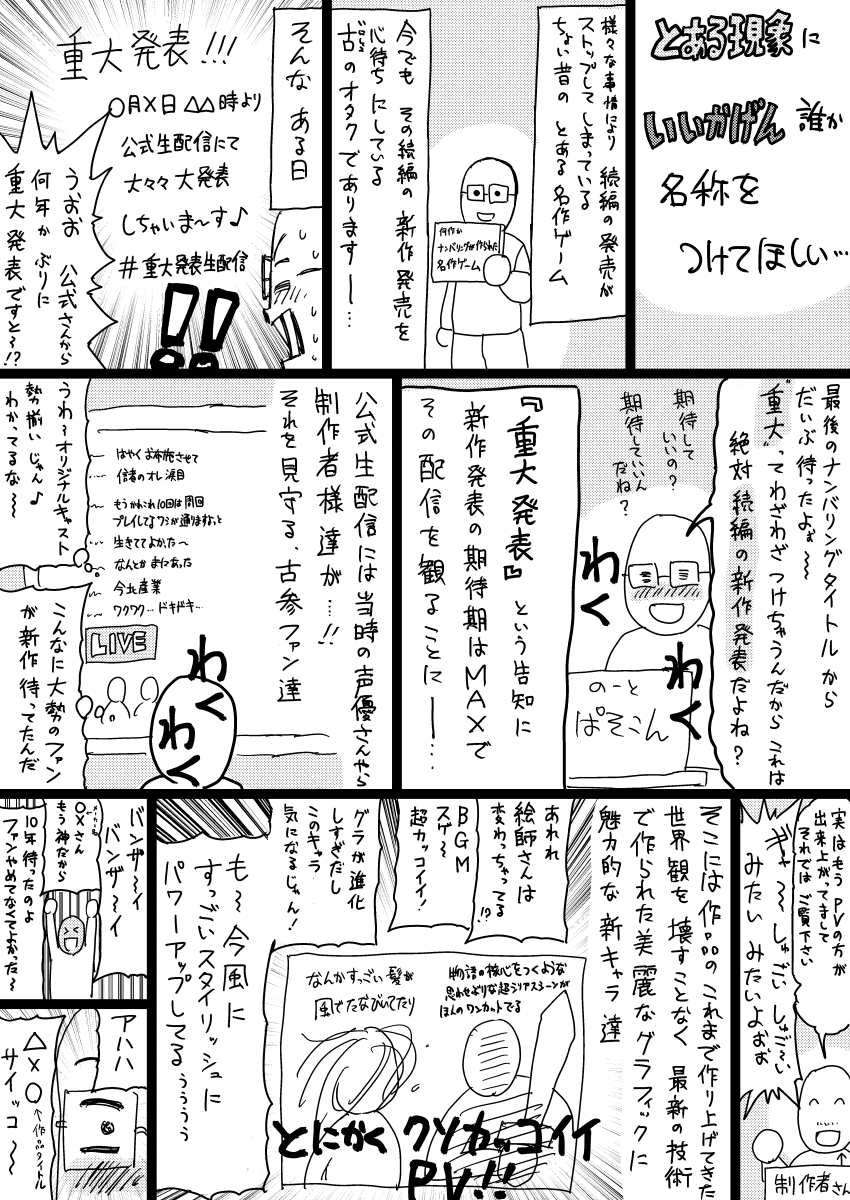 とある現象に
いいかげん 誰か
名称を
つけてほしい…
様々な事情により 続編の発売が
ストップしてしまっている
ちょい昔の とある 名作ゲーム
何作か
ナンバリングが作られた
名作ゲーム
今でも その続編の 新作発売を
心待ち にしている
古のオタク であります ー…
そんな ある日
重大発表!!!
〇月×日 △△時より
公式生配信にて
大々々 大発表
しちゃいま〜す♪
#重大発表生配信
うおお 公式さんから
何年か ぶりに
重大発表ですと〜!?
!!
最後のナンバリングタイトル から
だいぶ 待ったよぉ〜〜
"重大"って わざわざ つけちゃうんだから これは
絶対 続編の新作発表だよね?
期待して
いいの?
期待していいん
だね?
わく
わく
のーと
ぱそこん
『重大発表』という告知に
新作発表の期待期はMAXで
その配信を観ることに ー…
公式生配信には当時の声優さんやら
制作者様達が…!!
それを見守る、古参ファン達
はやくお布施させて
信者のオレ 涙目
もうかれこれ10回は周回
プレイしてるワシが通りますよっと
生きててよかった〜
なんとか まにあった
今北産業
ワクワク… ドキドキ…
LIVE
わく
わく
うわ〜オリジナルキャスト
勢揃い じゃん♪
わかってるな〜〜
こんなに大勢のファン
が新作 待ってたんだ
実はもう PVの方が
出来上がってまして
それでは ご覧下さい
ギャ〜〜しゅごい しゅご〜い
みたい みたいよぉぉ
制作者さん
そこには作品の これまで作り上げてきた
世界観を 壊すことなく 最新の技術
で作られた美麗なグラフィックに
魅力的な 新キャラ達
あれれ
絵師さんは
変わっちゃってる
!?
BGM
スゲ〜
超カッコイイ!
グラが進化
しすぎだし
このキャラ
気になるじゃん!
も〜今風に
すっごいスタイリッシュに
パワーアップしてるぅぅぅぅ
物語の核心をつくような
思わせぶりな超シリアスシーンが
ほんのワンカットでる
なんかすっごい髪が
風でたなびいてたり
とにかく クソカッコイイ
PV!!
バンザ〜イ
バンザ〜イ
メーカー名
〇×さん
もう神だから
10年待ったのよ
ファンやめてなくてよかった〜
アハハ
△×〇 ←作品タイトル
サイッコ〜〜